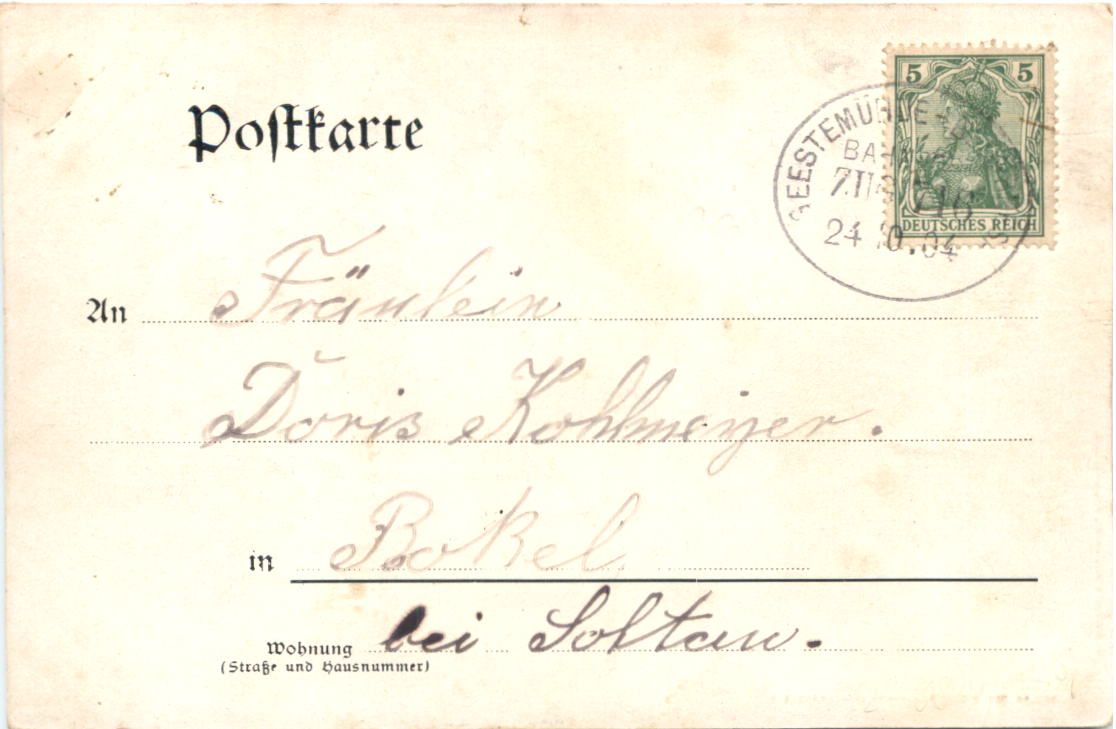 Postkarte
5 5
DEUTSCHES REICH
GEESTEMÜNDE
BAHNPOST
ZUG 216
24 10.04
An Fräulein
Doris Kohlmeyer.
in Bokel
bei Soltau.
Wohnung
(Straße und Hausnummer)